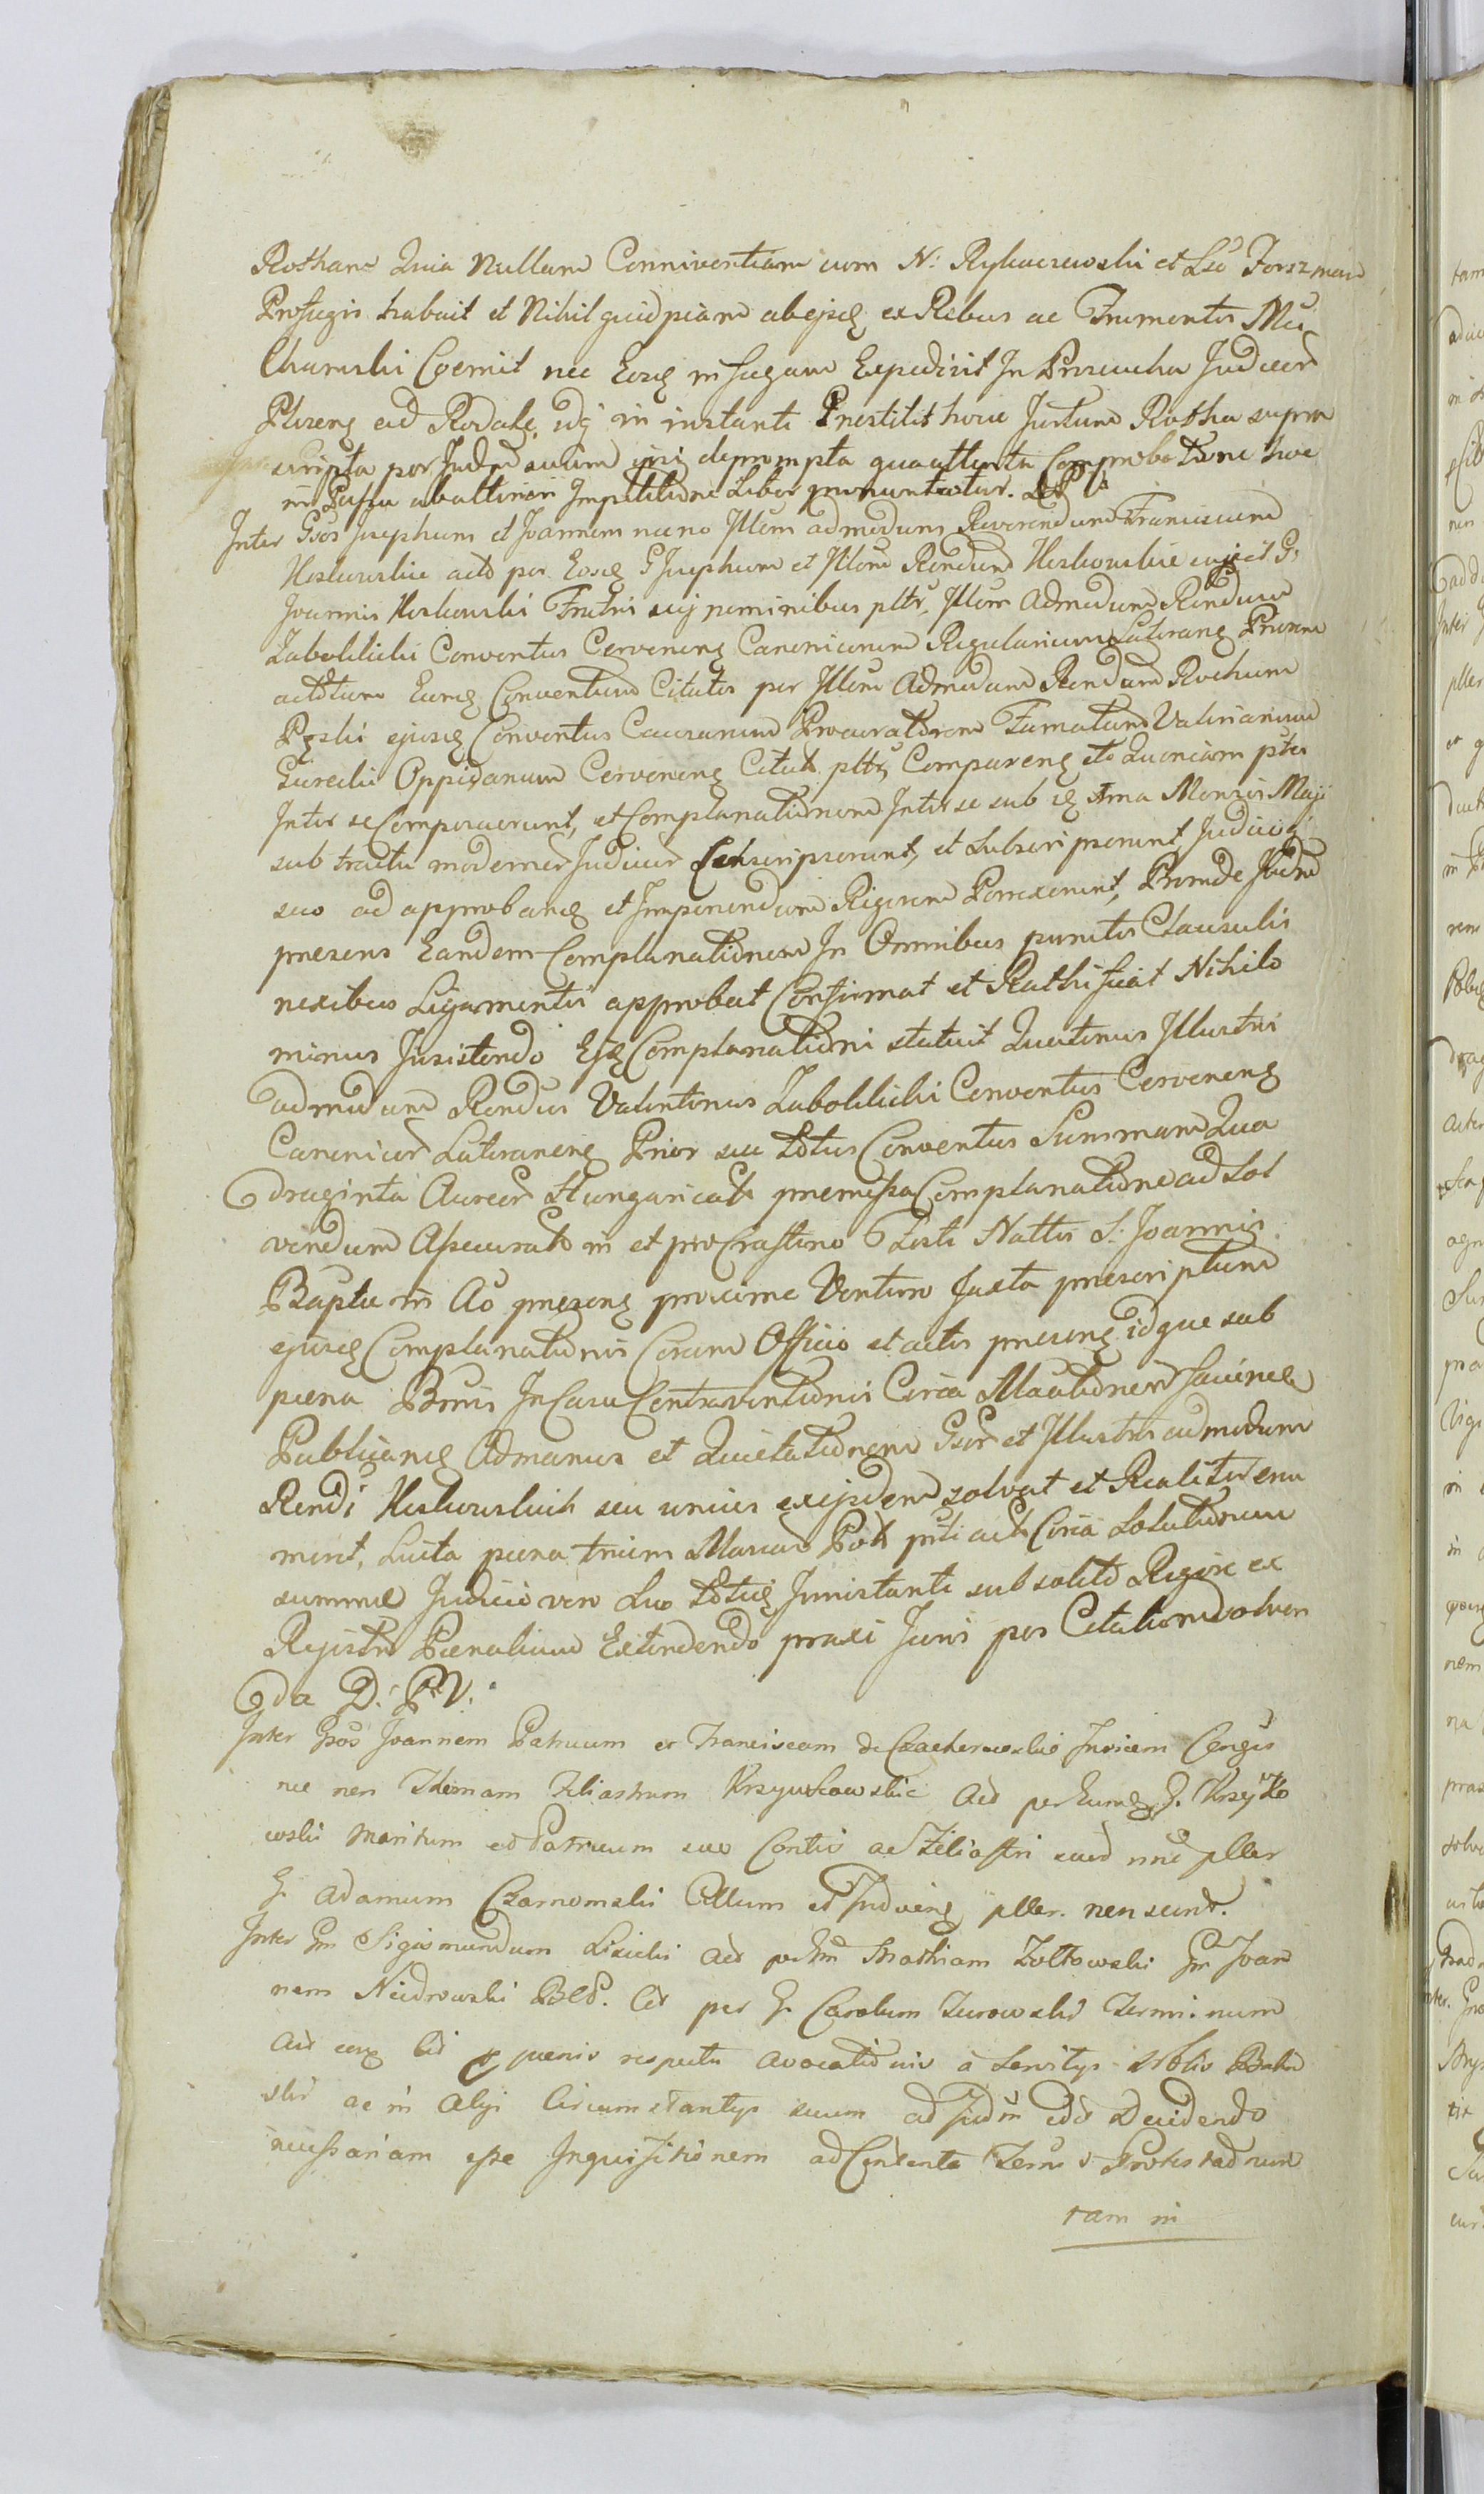 Rotham Quia Nullam Conniventiam cum N: Rykaczewski et Forszman
Profugis habuit et Nihil quidpiam ab ejsq ex Rebus ac Frumentis
Charuski Coemit nec Eosq in fugam Expedivit In Judicior
ad Rodale in instanti Prestitit hocce Juxtum Rotha supra
scripta per Judm suum ipsi deprompta qua attenta Comprobatione hoc
in Passu ab altiori Impetitione Liber pronuntiatur.
Inter Gsos Josephum et Joannem nec no Illem admodum Reverendum Franciscum
Koskowskie acto per Eosq G Josephum et Illem Rendum Koskowskie G:
Joannis Koskowski Fratris sui nominibus plltr, Illem Admodum Rendum
Zabokllicki Conventus Cervenenq Canonicorum Regularium Lateranq Priorem
actotum Eunq Conventum Citatos per Illem Admodum Rendum Rochum
ejusq Conventus Causarum Procuratorem Famatum Valerianum
Oppidanum Cervenenq Citat plltr, Comparenq Quoniam ptes
Inter se Composuerunt, et Complanationem Inter se sub Mensis Maji
sub tractu moderner Judicior Conscripserunt, et Subscripserunt, Judicioq
suo ad approbanq et Imponendum Rigorem Porrexerunt, Proinde Judm
presens Eandem Complanationem In Omnibus punctis Clausulis
nexibus Ligamentis approbat Confirmat et Rathificat Nihilo
minus Insistendo Ejsq Complanationi statuit Quatenus Illustris
admodum Rendus Valentinus Zabokllicki Conventus Cervenenq
Canonicor Lateranenq Prior seu totus Conventus Summam Qua
draginta Aureor Hungaricalt premissa Complanatione ad Sol
vendum Assecurato in et pro Crastino Festi Nattis S. Joannis
Baptae in Ao presenq proxime Venturo Juxta prescriptum
ejusq Complanationis Coram Officio et actis presenq idque sub
paena Bnis In Casu Contraventionis Circa
Publicanq Admanus et Quietationem Gsor et Illustris admodum
Rendi Koskowskich seu unius ex ejsdem solvat et Realiter enu
meret, Luita paena trium Marcar Circa Solutionem
summae Judicio vero Luo Toties Ininstanti sub solito Rigore ex
Regestro Paenalium Extendendo praxi Juris per Citationem solven
da D. P. V.
Inter Gsos Joannem Patruum et Franciscam de Czachorowskie Invicem Conges
nec non Thomam Filiastrum Krzyżkowskie act per Eumq G. Krzyżko
wski Maritum et Patruum suo Contis ac Filiastri sui nne pller
G. Adamum Czarnomski Cittum et Induenq pller. non sunt.
Inter Gm Sigismundum Lisicki act per Gm Mathiam Żołtowski Gm Joan
nem Niedrowski Cit per G. Carolum Żurowski Terminum
act et paenis respectu avocationis a Servitys
ski ac in Alijs Circumstantys suum ad Judm Decidendo
necessariam esse Inquisitionem ad Contenta Termi Protestationum
tam in